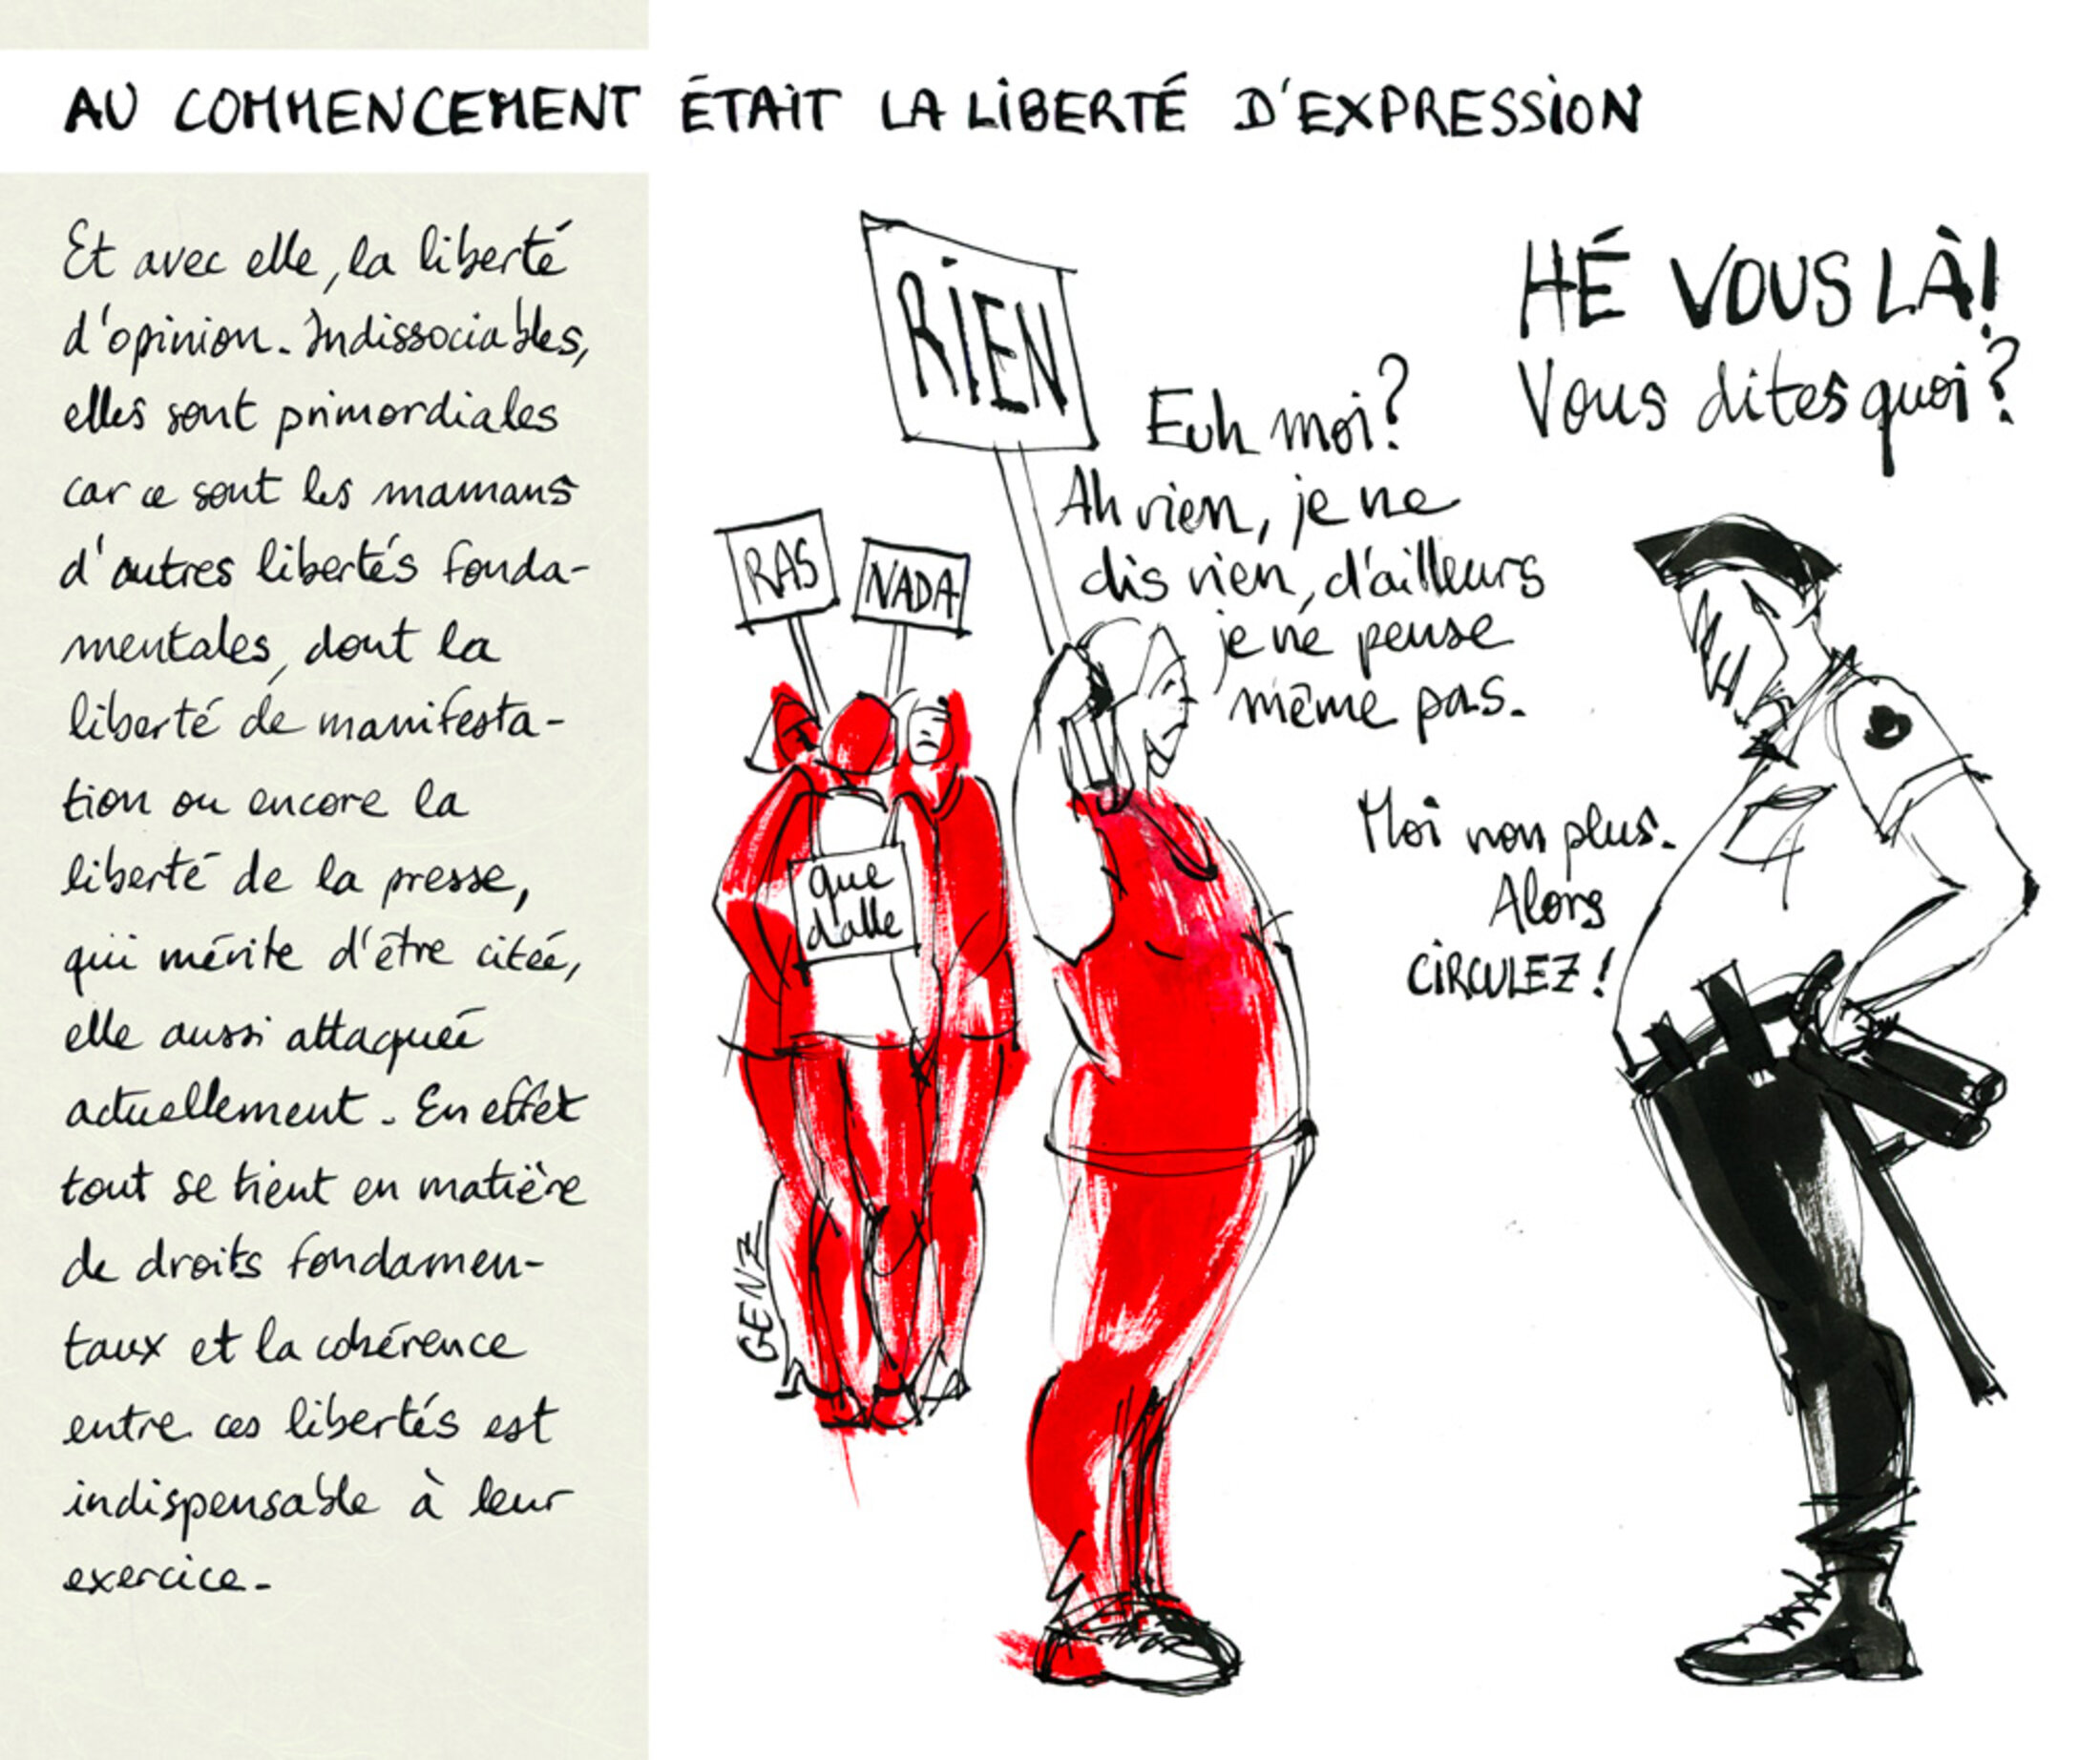 AU COMMENCEMENT ÉTAIT LA LIBERTÉ D'EXPRESSION
Et avec elle, la liberté
d'opinion. Indissociables,
elles sont primordiales
car ce sont les mamans
d'autres libertés fonda-
mentales, dont la
liberté de manifesta-
tion ou encore la
liberté de la presse,
qui mérite d'être citée,
elle aussi attaquée
actuellement. En effet
tout se tient en matière
de droits fondamen-
taux et la cohérence
entre ces libertés est
indispensable à leur
exercice.
RIEN
RAS
NADA
que
dalle
HÉ VOUS LÀ!
Vous dites quoi?
Euh moi?
Ah rien, je ne
dis rien, d'ailleurs
je ne pense
même pas.
Moi non plus.
Alors
CIRCULEZ!
GENZ